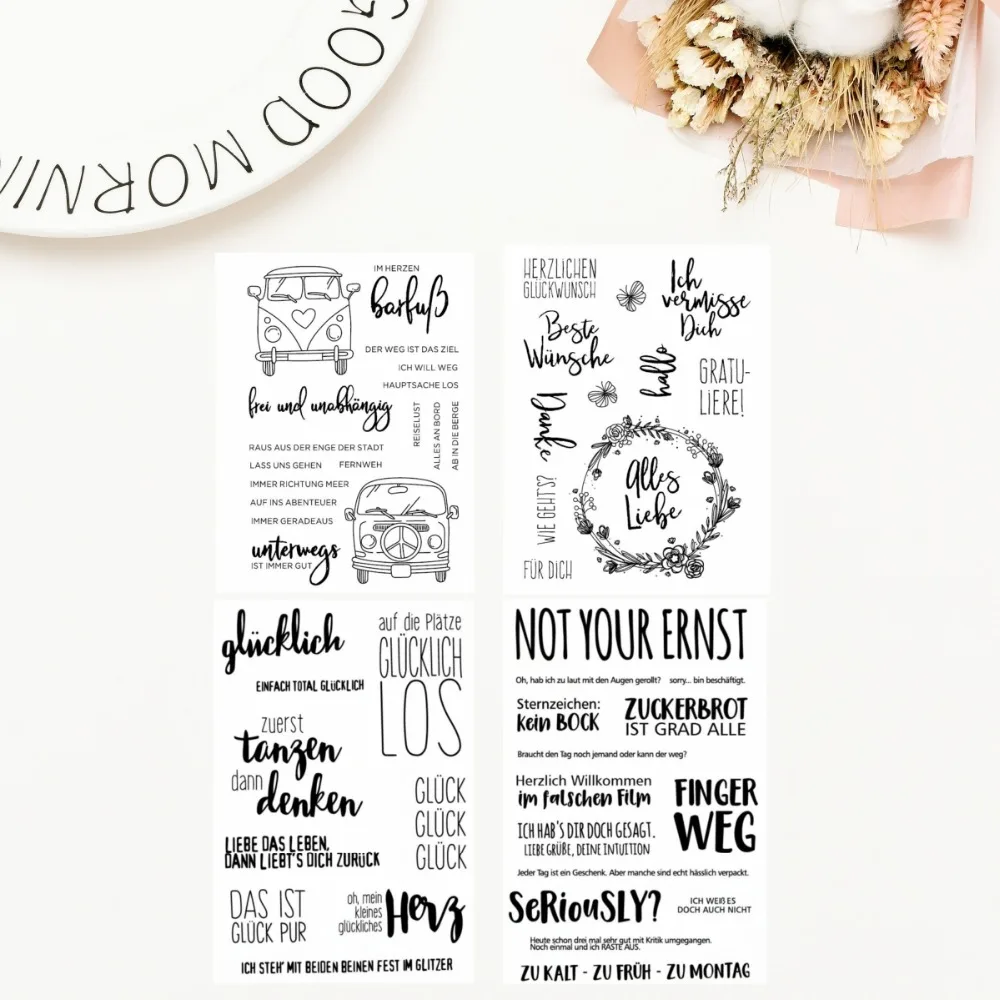 GOOD MORNIN
IM HERZEN
barfuß
DER WEG IST DAS ZIEL
ICH WILL WEG
HAUPTSACHE LOS
frei und unabhängig
REISELUST
ALLES AN BORD
AB IN DIE BERGE
RAUS AUS DER ENGE DER STADT
LASS UNS GEHEN FERNWEH
IMMER RICHTUNG MEER
AUF INS ABENTEUER
IMMER GERADEAUS
unterwegs
IST IMMER GUT
HERZLICHEN
GLÜCKWUNSCH
Ich
vermisse
Dich
Beste
Wünsche
hallo
GRATU-
LIERE!
Danke
Alles
Liebe
WIE GEHT'S?
FÜR DICH
glücklich
EINFACH TOTAL GLÜCKLICH
auf die Plätze
GLÜCKLICH
LOS
zuerst
tanzen
dann
denken
GLÜCK
GLÜCK
GLÜCK
LIEBE DAS LEBEN,
DANN LIEBT'S DICH ZURÜCK
DAS IST
GLÜCK PUR
oh, mein
kleines
glückliches
Herz
ICH STEH' MIT BEIDEN BEINEN FEST IM GLITZER
NOT YOUR ERNST
Oh, hab ich zu laut mit den Augen gerollt? sorry... bin beschäftigt.
Sternzeichen:
kein BOCK
ZUCKERBROT
IST GRAD ALLE
Braucht den Tag noch jemand oder kann der weg?
Herzlich Willkommen
im falschen Film
FINGER
WEG
ICH HAB'S DIR DOCH GESAGT.
LIEBE GRÜßE, DEINE INTUITION
Jeder Tag ist ein Geschenk. Aber manche sind echt hässlich verpackt.
SeRiouSLY?
ICH WEIß ES
DOCH AUCH NICHT
Heute schon drei mal sehr gut mit Kritik umgegangen.
Noch einmal und ich RASTE AUS.
ZU KALT - ZU FRÜH - ZU MONTAG